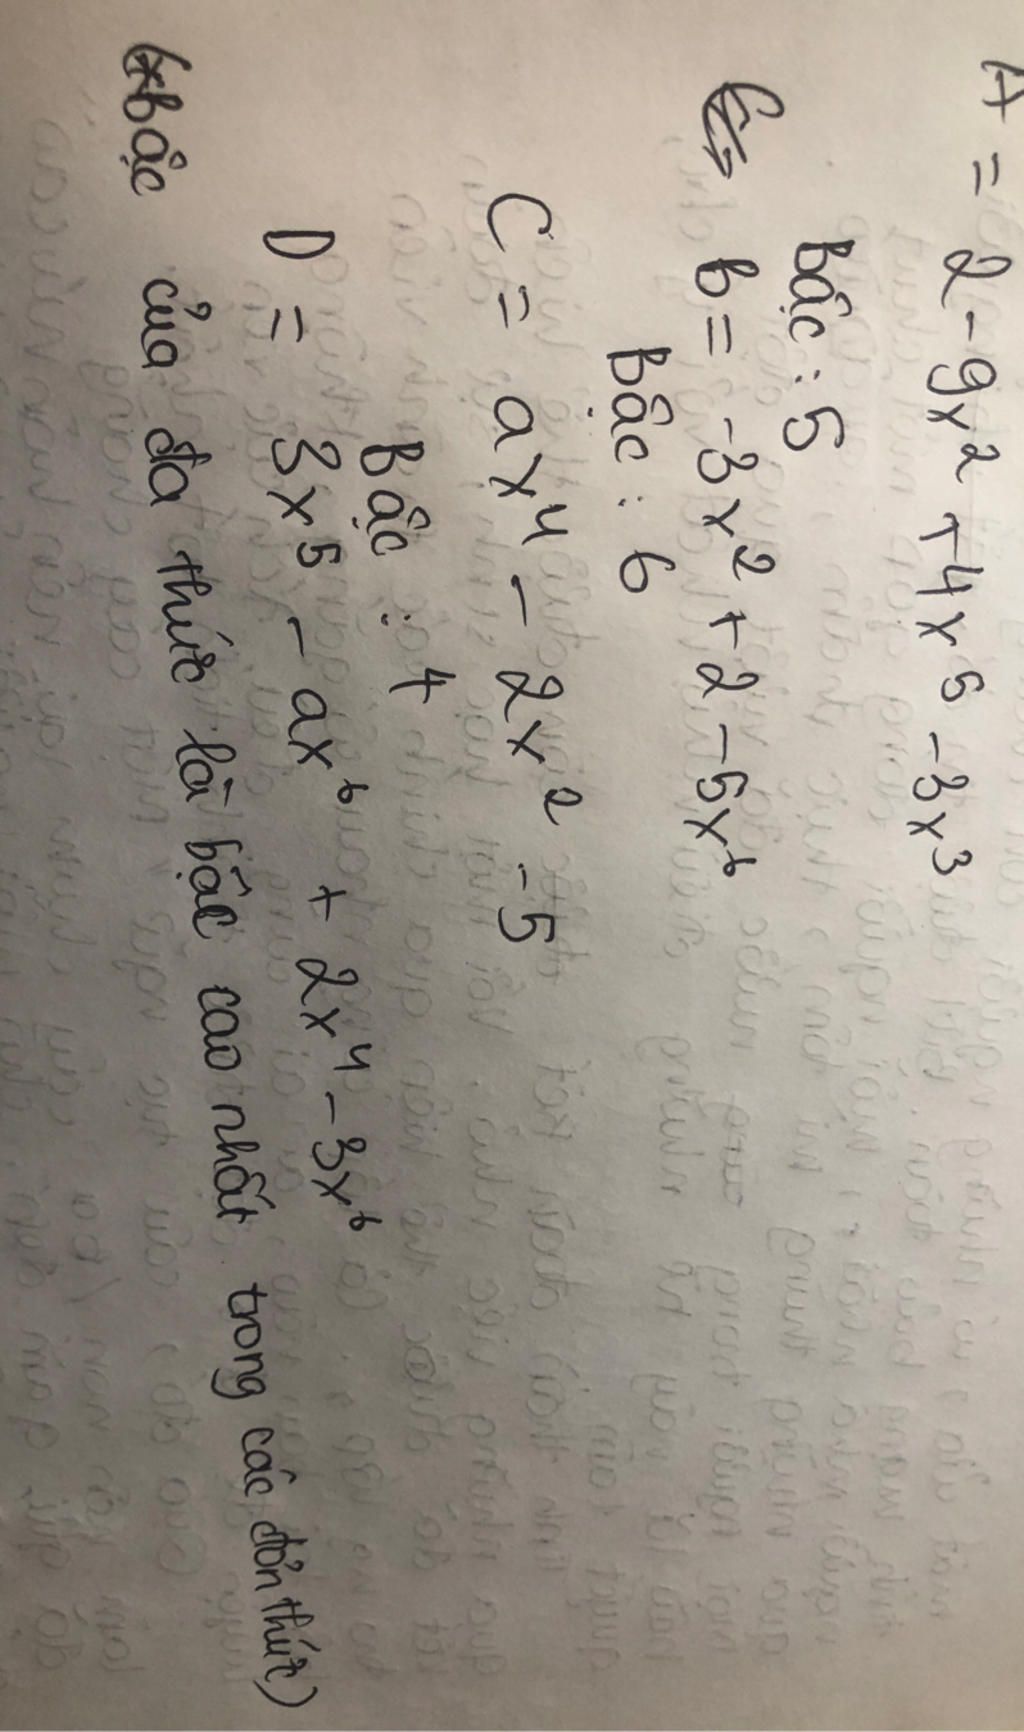 A = 2 - 9x² + 4x⁵ - 3x³
Bậc : 5
B = -3x² + 2 - 5x⁶
Bậc : 6
C = ax⁴ - 2x² - 5
Bậc : 4
D = 3x⁵ - ax⁶ + 2x⁴ - 3x⁶
(*Bậc của đa thức là bậc cao nhất trong các đơn thức)